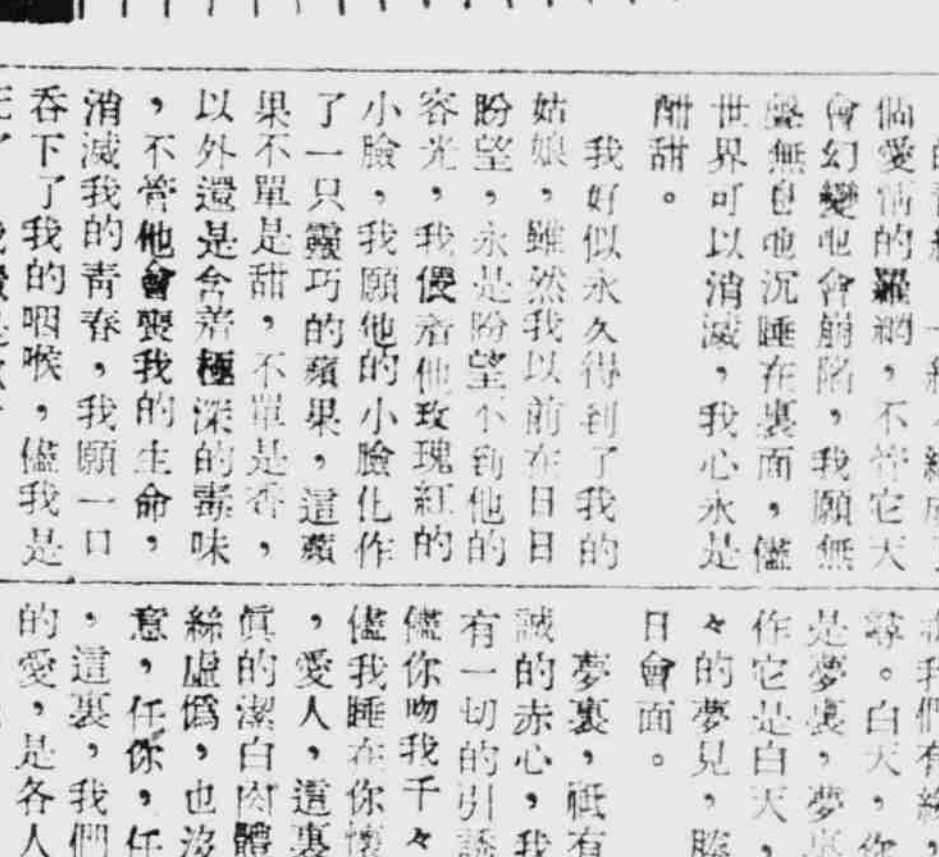 個愛情的羅網，不管它天
會幻變地會崩陷，我願無
聲無息地沉睡在裏面，儘
世界可以消滅，我心永是
酣甜。
我好似永久得到了我的
姑娘，雖然我以前在日日
盼望，永是盼望不到他的
容光，我偎着他玫瑰紅的
小臉，我願他的小臉化作
了一只靈巧的蘋果，這蘋
果不單是甜，不單是香，
以外還是含着極深的毒味
，不管他會喪我的生命，
消滅我的青春，我願一口
吞下了我的咽喉，儘我是
我們有
尋。白天，你
是夢裏，夢裏
作它是白天，
々的夢見，勝
日會面。
夢裏，祗有
誠的赤心，我
有一切的引誘
儘你吻我千々
儘我睡在你懷
，愛人，這裏
眞的潔白肉體
絲虛僞，也沒
意，任你，任
，這裏，我們
的愛，是各人